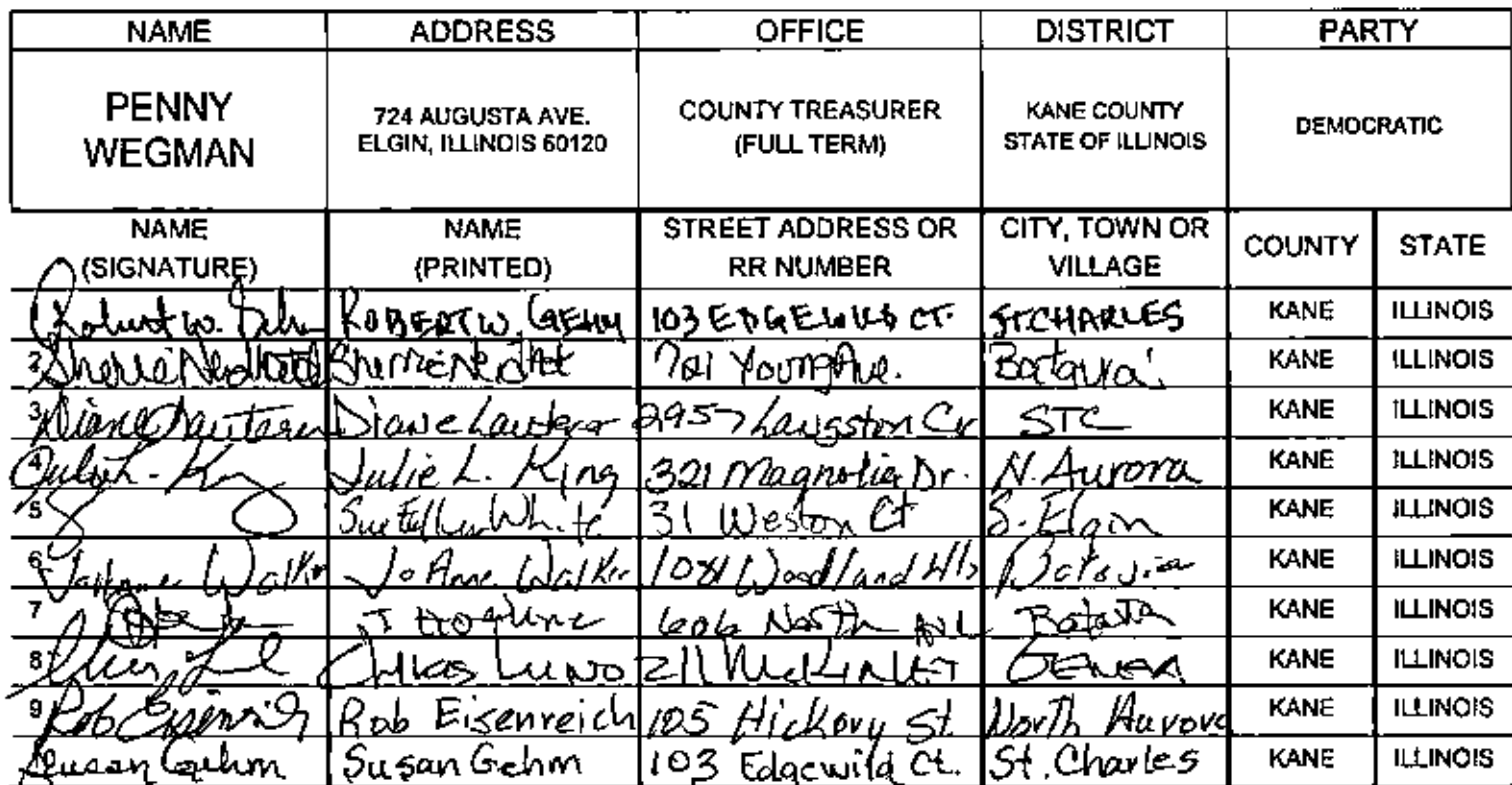 NAME ADDRESS OFFICE DISTRICT PARTY
PENNY WEGMAN 724 AUGUSTA AVE. ELGIN, ILLINOIS 60120 COUNTY TREASURER (FULL TERM) KANE COUNTY STATE OF ILLINOIS DEMOCRATIC
NAME (SIGNATURE) NAME (PRINTED) STREET ADDRESS OR RR NUMBER CITY, TOWN OR VILLAGE COUNTY STATE
Robert W. ROBERT W. GEHM 103 EDGEWILD CT. ST CHARLES KANE ILLINOIS
2 Sherrie 721 Young Ave. Batavia KANE ILLINOIS
3 Diane Diane 2957 Langston Cr STC KANE ILLINOIS
4 Julie L. King Julie L. King 321 Magnolia Dr. N. Aurora KANE ILLINOIS
5 Sue Ellen White 31 Weston Ct S. Elgin KANE ILLINOIS
6 JoAnne Walker Jo Anne Walker Woodland Hls Batavia KANE ILLINOIS
7 J 606 North Ave Batavia KANE ILLINOIS
8 211 McKINLEY GENEVA KANE ILLINOIS
9 Rob Eisenreich Rob Eisenreich 105 Hickory St. North Aurora KANE ILLINOIS
Susan Gehm Susan Gehm 103 Edgewild Ct. St. Charles KANE ILLINOIS